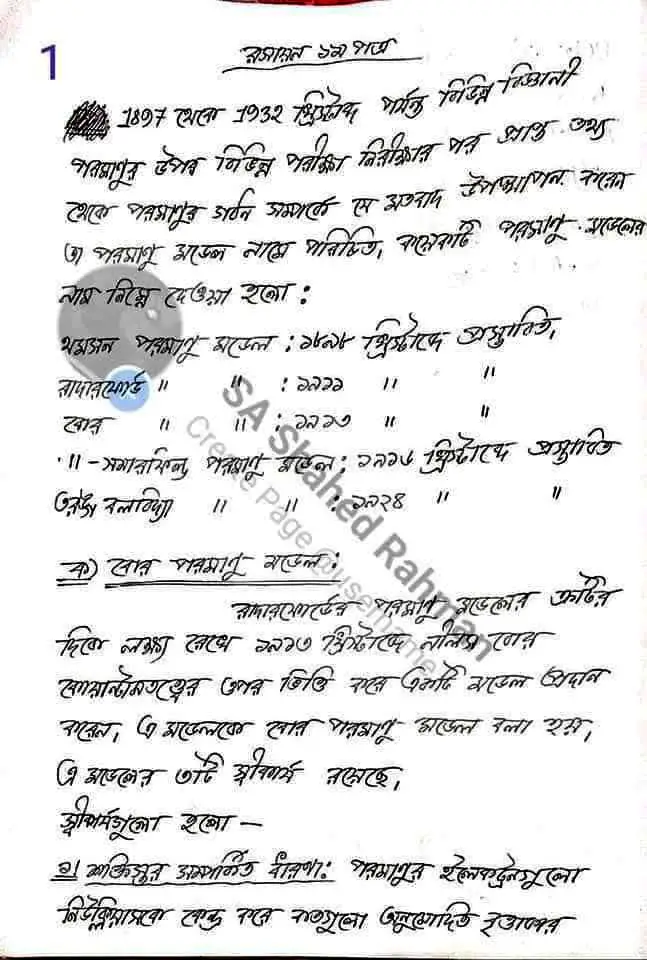 1
রসায়ন ১ম পত্র
1897 থেকে 1932 খ্রিস্টাব্দ পর্যন্ত বিভিন্ন বিজ্ঞানী
পরমাণুর উপর বিভিন্ন পরীক্ষা নিরীক্ষার পর প্রাপ্ত তথ্য
থেকে পরমাণুর গঠন সম্পর্কে যে মতবাদ উপস্থাপন করেন
তা পরমাণু মডেল নামে পরিচিত, কয়েকটি পরমাণু মডেলের
নাম নিম্নে দেওয়া হলো :
থমসন পরমাণু মডেল : ১৮৯৮ খ্রিস্টাব্দে প্রস্তাবিত,
রাদারফোর্ড " " : ১৯১১ " "
বোর " " : ১৯১৩ " "
" - সমারফিল্ড পরমাণু মডেল : ১৯১৬ খ্রিস্টাব্দে প্রস্তাবিত
তরঙ্গ বলবিদ্যা " " : ১৯২৪ " "
ক) বোর পরমাণু মডেল :
রাদারফোর্ডের পরমাণু মডেলের ত্রুটির
দিকে লক্ষ্য রেখে ১৯১৩ খ্রিস্টাব্দে নীলস বোর
কোয়ান্টামতত্ত্বের ওপর ভিত্তি করে একটি মডেল প্রদান
করেন, এ মডেলকে বোর পরমাণু মডেল বলা হয়,
এ মডেলের ৩টি স্বীকার্য রয়েছে,
স্বীকার্যগুলো হলো —
১। শক্তিস্তর সম্পর্কিত ধারণা : পরমাণুর ইলেকট্রনগুলো
নিউক্লিয়াসকে কেন্দ্র করে কতগুলো অনুমোদিত বৃত্তাকার
SA Shahed Rahman
Create Page @username